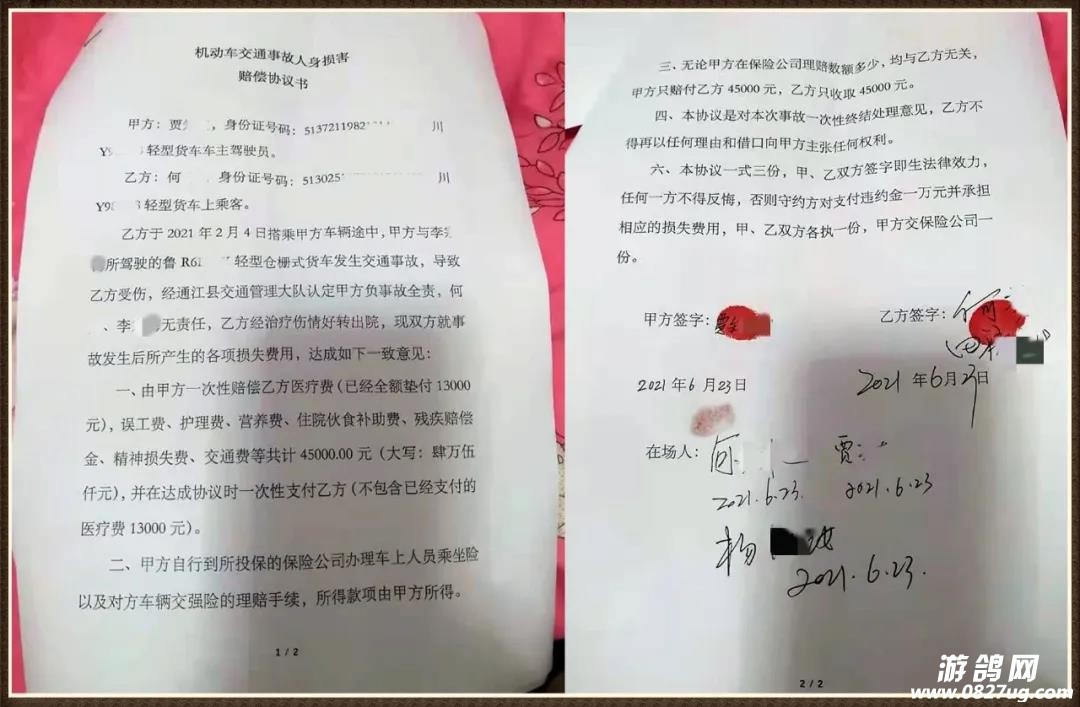 机动车交通事故人身损害
赔偿协议书
甲方：贾 ，身份证号码：5137211982 川
Y9 轻型货车车主驾驶员。
乙方：何 ，身份证号码：513025 川
Y98 8 轻型货车上乘客。
乙方于 2021 年 2 月 4 日搭乘甲方车辆途中，甲方与李
所驾驶的鲁 R61 轻型仓栅式货车发生交通事故，导致
乙方受伤，经通江县交通管理大队认定甲方负事故全责，何
、李 无责任，乙方经治疗伤情好转出院，现双方就事
故发生后所产生的各项损失费用，达成如下一致意见：
一、由甲方一次性赔偿乙方医疗费（已经全额垫付 13000
元），误工费、护理费、营养费、住院伙食补助费、残疾赔偿
金、精神损失费、交通费等共计 45000.00 元（大写：肆万伍
仟元），并在达成协议时一次性支付乙方（不包含已经支付的
医疗费 13000 元）。
二、甲方自行到所投保的保险公司办理车上人员乘坐险
以及对方车辆交强险的理赔手续，所得款项由甲方所得。
1 / 2
三、无论甲方在保险公司理赔数额多少，均与乙方无关，
甲方只赔付乙方 45000 元，乙方只收取 45000 元。
四、本协议是对本次事故一次性终结处理意见，乙方不
得再以任何理由和借口向甲方主张任何权利。
六、本协议一式三份，甲、乙双方签字即生法律效力，
任何一方不得反悔，否则守约方对支付违约金一万元并承担
相应的损失费用，甲、乙双方各执一份，甲方交保险公司一
份。
甲方签字：贾
乙方签字：何
2021 年 6 月 23 日
2021 年 6 月 23 日
在场人：何 贾
2021.6.23. 2021.6.23
杨
2021.6.23.
2 / 2
游鸽网
www.0827ug.com